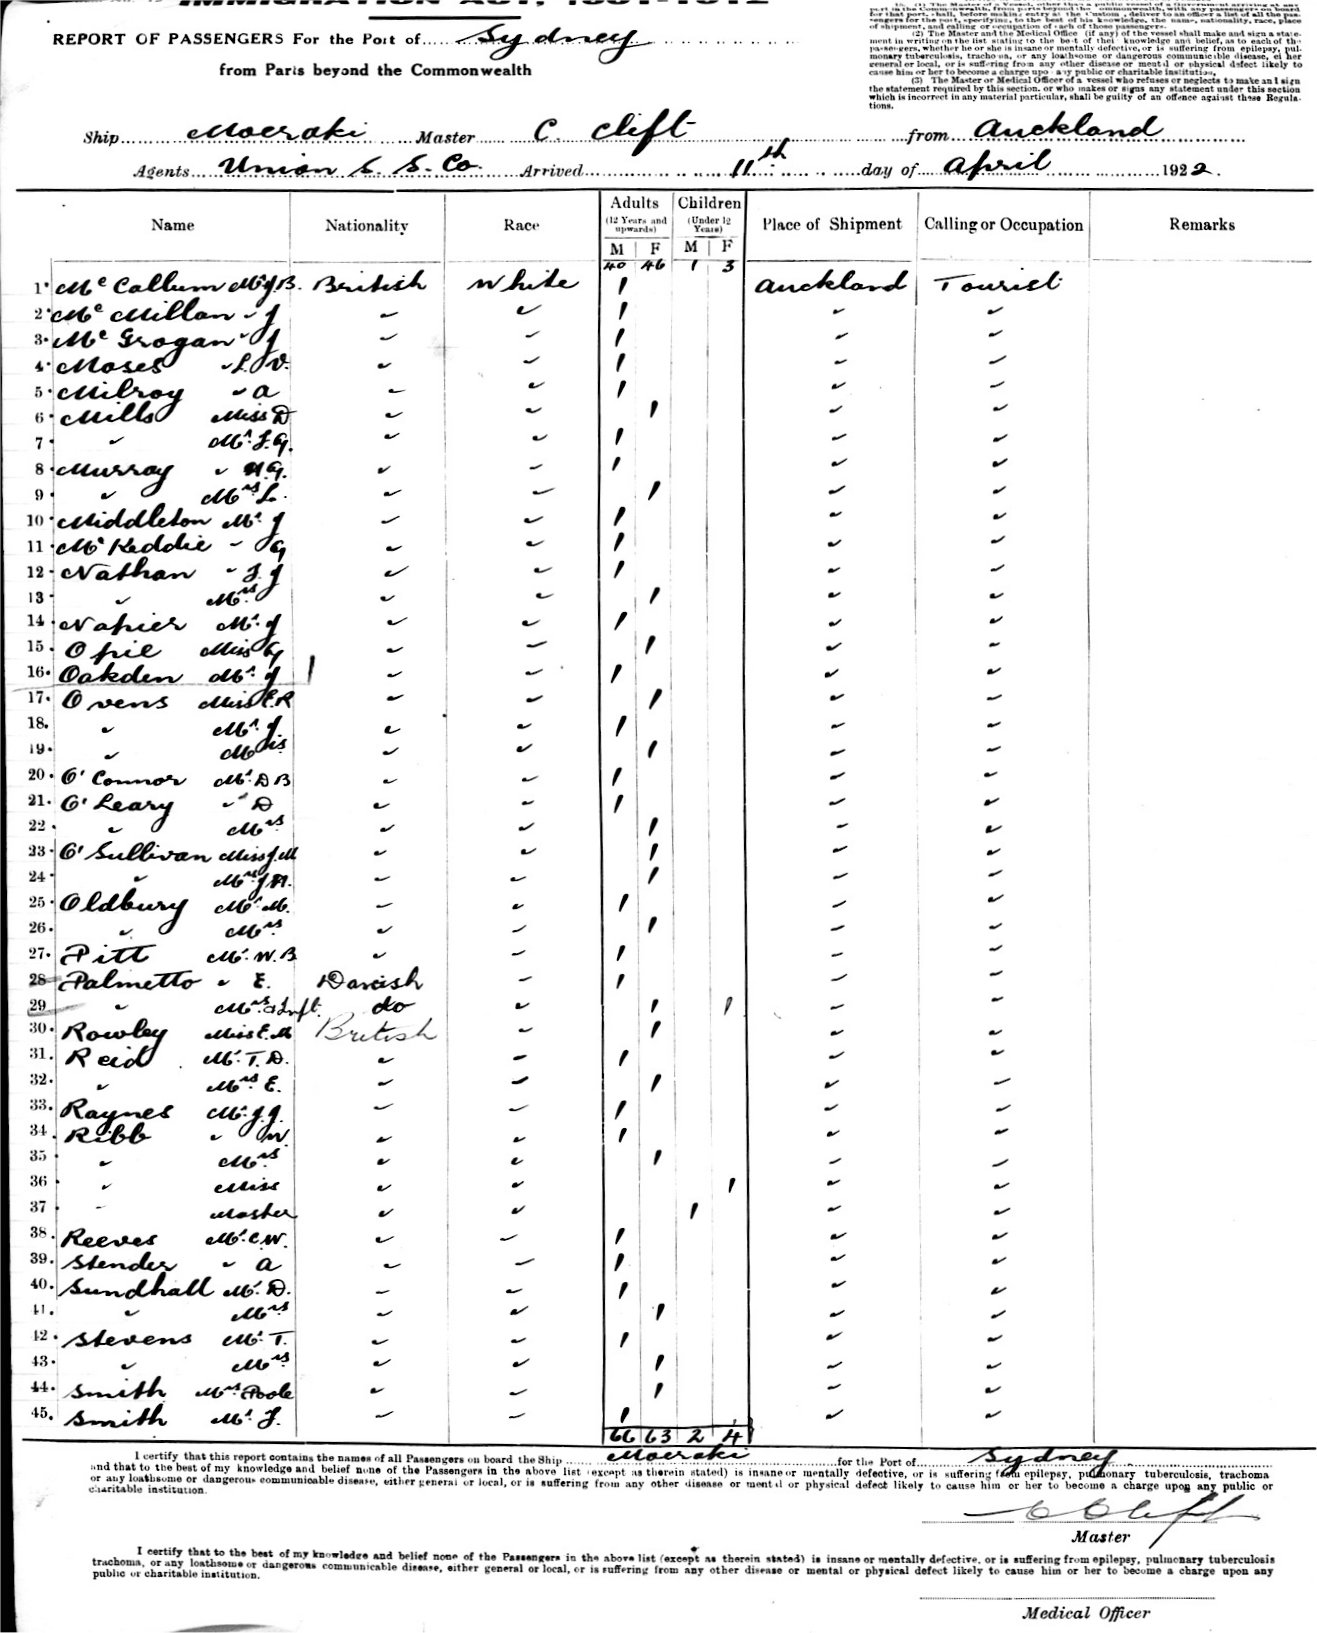 IMMIGRATION ACT, 1901-1912
REPORT OF PASSENGERS For the Port of Sydney
from Parts beyond the Commonwealth
(2) The Master and the Medical Office (if any) of the vessel shall make and sign a state-
ment in writing on the list stating to the best of their knowledge and belief, as to each of the
passengers, whether he or she is insane or mentally defective, or is suffering from epilepsy, pul-
monary tuberculosis, trachoma, or any loathsome or dangerous communicable disease, either
general or local, or is suffering from any other disease or mental or physical defect likely to
cause him or her to become a charge upon any public or charitable institution,
(3) The Master or Medical Officer of a vessel who refuses or neglects to make and sign
the statement required by this section, or who makes or signs any statement under this section
which is incorrect in any material particular, shall be guilty of an offence against these Regula-
tions.
Ship Moeraki Master C Clift from Auckland
Agents Union S. S. Co. Arrived 11th day of April 1922.
Name Nationality Race Adults (12 Years and upwards) M F Children (Under 12 Years) M F Place of Shipment Calling or Occupation Remarks
40 46 1 3
1 McCallum Mr J B. British White 1 Auckland Tourist
2 McMillan " J " " 1 " "
3 McGrogan " J " " 1 " "
4 Moses " L. V. " " 1 " "
5 Milroy " A " " 1 " "
6 Mills Miss D " " 1 " "
7 " Mr. F. G. " " 1 " "
8 Murray " H G. " " 1 " "
9 " Mrs L. " " 1 " "
10 Middleton Mr. J " " 1 " "
11 McKeddie " G " " 1 " "
12 Nathan " F. J " " 1 " "
13 " Mrs " " 1 " "
14 Napier Mr. J " " 1 " "
15. Opie Miss G " " 1 " "
16. Oakden Mr. J " " 1 " "
17. Ovens Miss E. R " " 1 " "
18. " Mr. J. " " 1 " "
19. " Mrs " " 1 " "
20. O'Connor Mr. D B " " 1 " "
21. O'Leary " D " " 1 " "
22. " Mrs " " 1 " "
23. O'Sullivan Miss J. M " " 1 " "
24. " Mrs J. H. " " 1 " "
25. Oldbury Mr. M. " " 1 " "
26. " Mrs " " 1 " "
27. Pitt Mr. W. B " " 1 " "
28 Palmetto " E. Danish " 1 " "
29 " Mrs & Inft. do " 1 1 " "
30. Rowley Miss E. M British " 1 " "
31. Reid Mr. T. D. " " 1 " "
32. " Mrs E. " " 1 " "
33. Raynes Mr. J. J. " " 1 " "
34. Ribb " W. " " 1 " "
35 " Mrs " " 1 " "
36 " Miss " " 1 " "
37 " Master " " 1 " "
38. Reeves Mr. C. W. " " 1 " "
39. Stender " A " " 1 " "
40. Sundhall Mr. D. " " 1 " "
41. " Mrs " " 1 " "
42. Stevens Mr. T. " " 1 " "
43. " Mrs " " 1 " "
44. Smith Mrs Poole " " 1 " "
45. Smith Mr. F. " " 1 " "
66 63 2 4
I certify that this report contains the names of all Passengers on board the Ship Moeraki for the Port of Sydney
and that to the best of my knowledge and belief none of the Passengers in the above list (except as therein stated) is insane or mentally defective, or is suffering from epilepsy, pulmonary tuberculosis, trachoma
or any loathsome or dangerous communicable disease, either general or local, or is suffering from any other disease or mental or physical defect likely to cause him or her to become a charge upon any public or
charitable institution.
C Clift
Master
I certify that to the best of my knowledge and belief none of the Passengers in the above list (except as therein stated) is insane or mentally defective, or is suffering from epilepsy, pulmonary tuberculosis
trachoma, or any loathsome or dangerous communicable disease, either general or local, or is suffering from any other disease or mental or physical defect likely to cause him or her to become a charge upon any
public or charitable institution.
Medical Officer